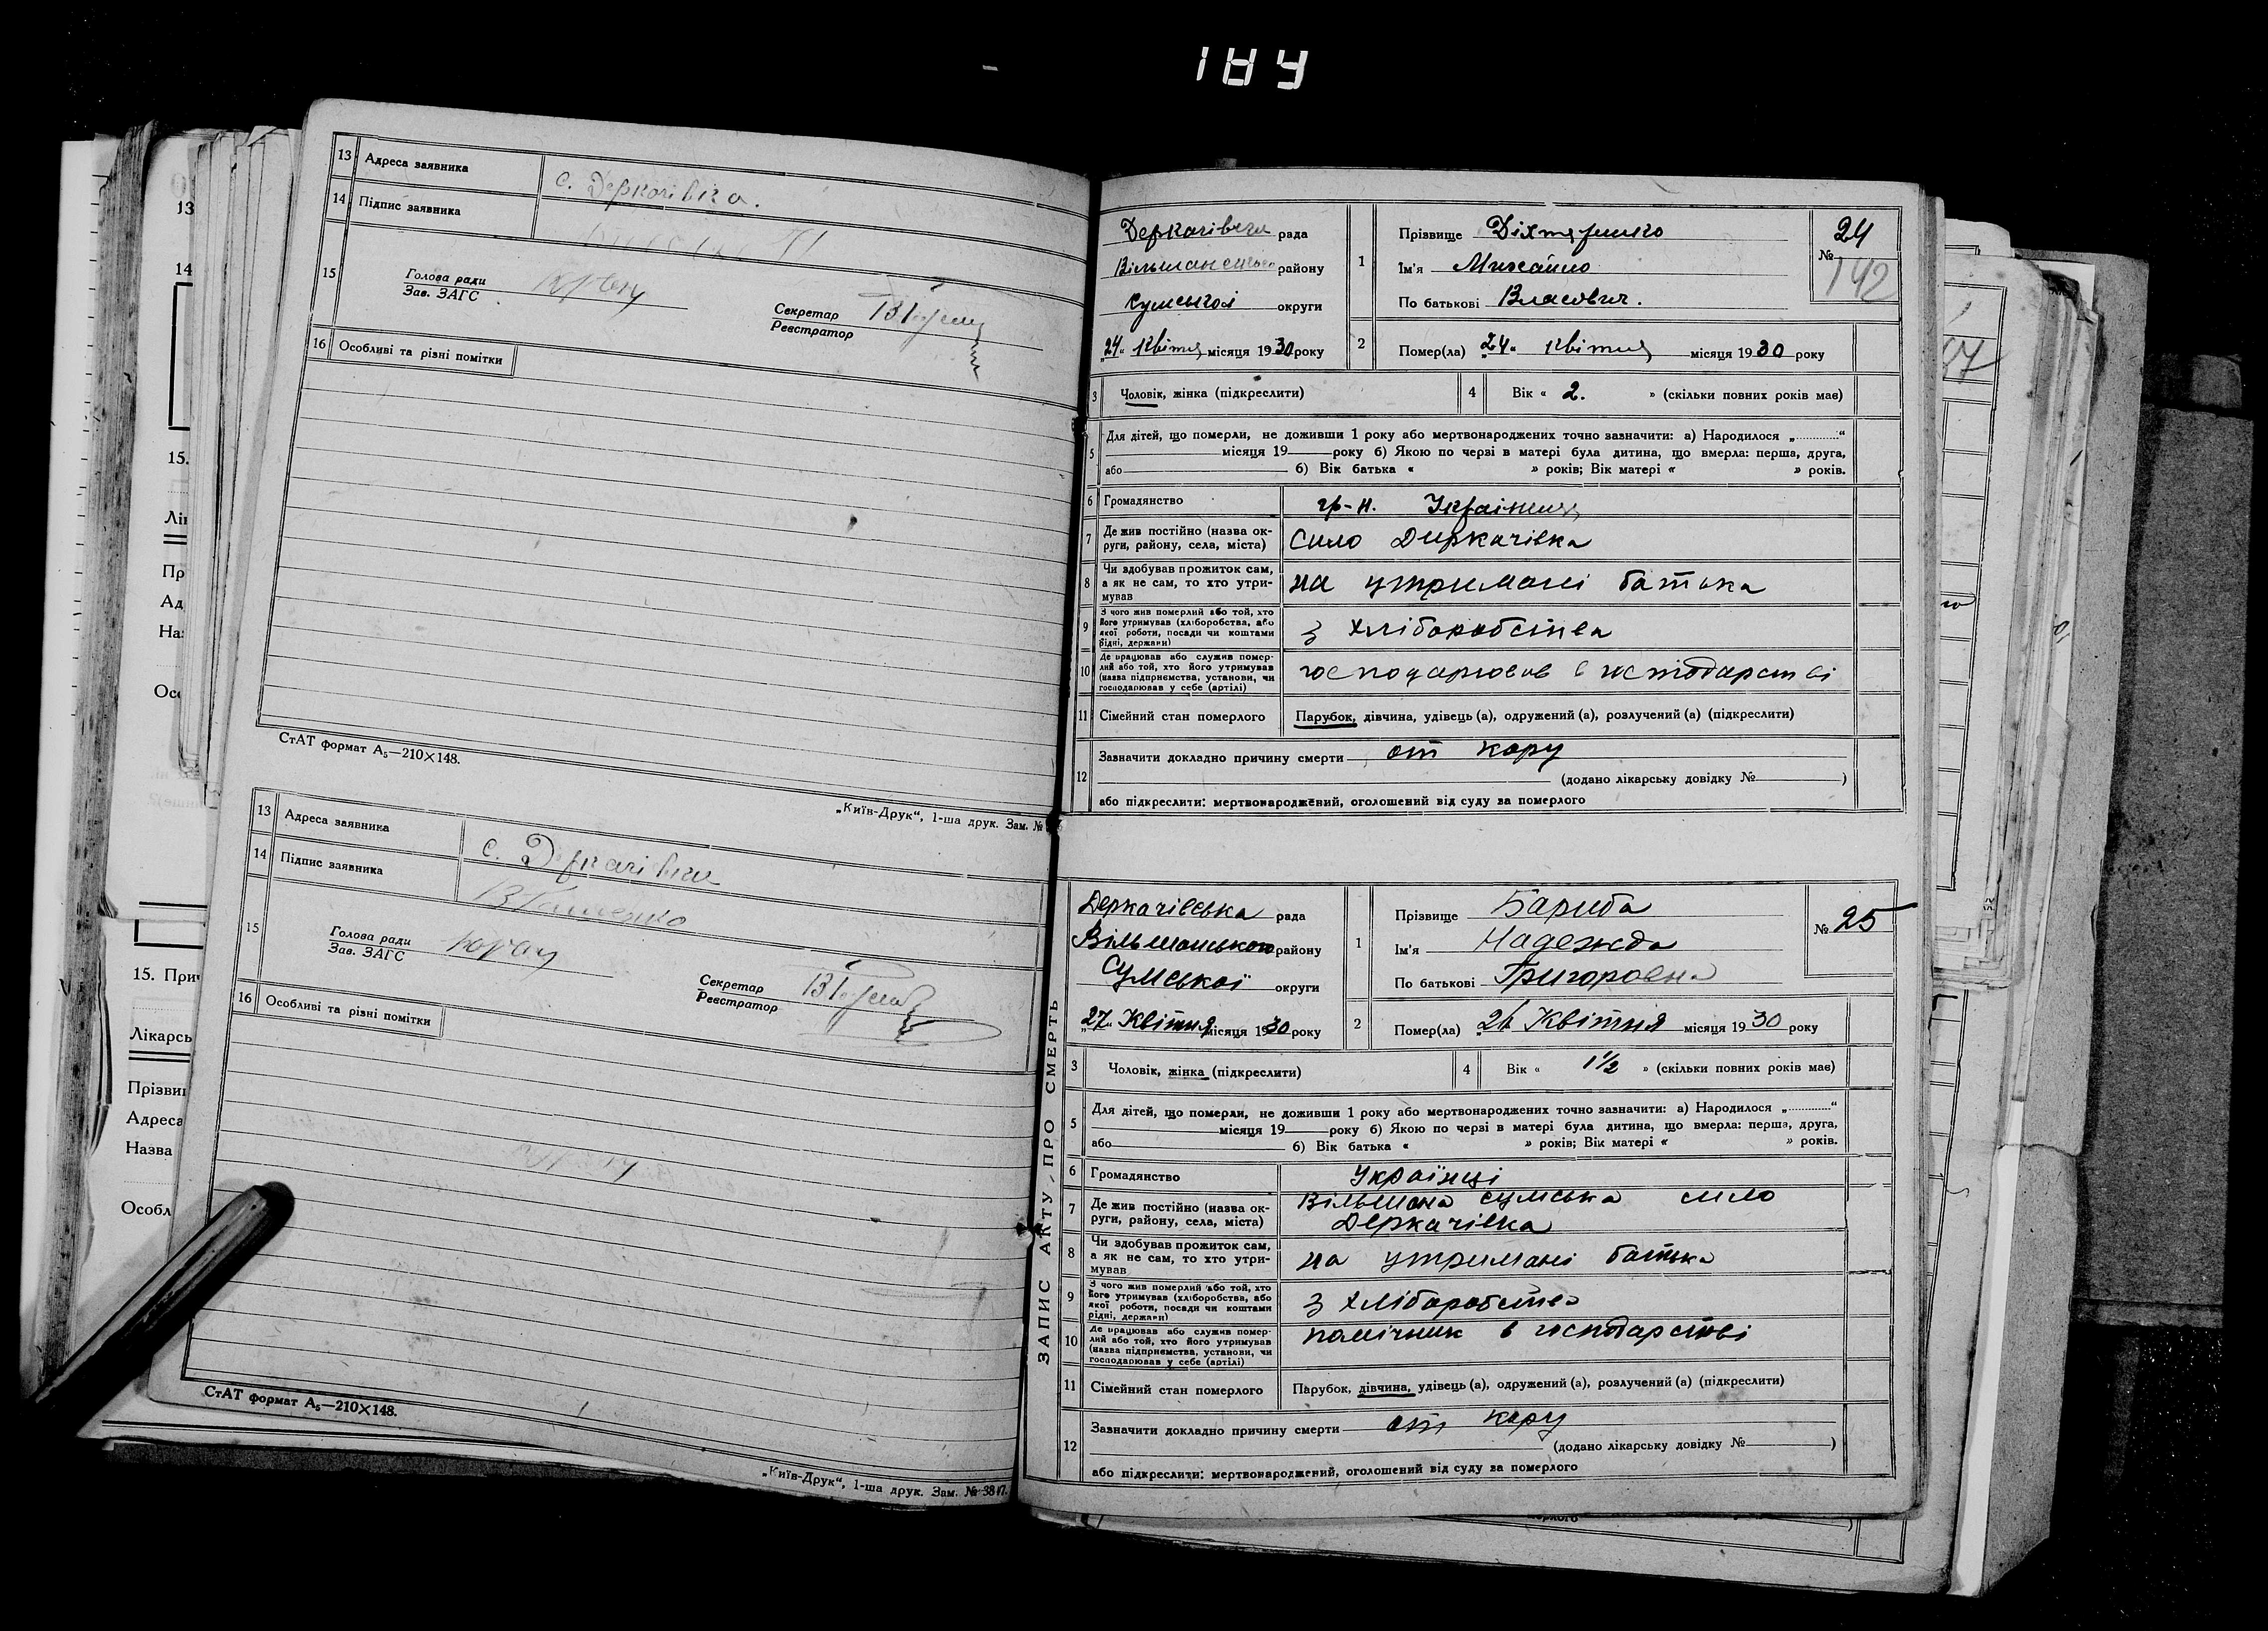 13 Адреса заявника с. Деркачівка.
14 Підпис заявника
15 Голова ради
Зав. ЗАГС
Секретар
Реєстратор
16 Особливі та різні помітки
СтАТ формат А₅—210×148.
„Київ-Друк“, 1-ша друк. Зам. №
13 Адреса заявника с. Деркачівка
14 Підпис заявника
15 Голова ради
Зав. ЗАГС
Секретар
Реєстратор
16 Особливі та різні помітки
СтАТ формат А₅—210×148.
„Київ-Друк“, 1-ша друк. Зам. № 3847.
Деркачівська рада
району
Сумської округи
„24“ Квітня місяця 1930 року
1 Прізвище Діхтяренко
Ім'я Михайло
По батькові Власович.
№ 24
142
2 Помер(ла) „24“ квітня місяця 1930 року
3 Чоловік, жінка (підкреслити)
4 Вік « 2. » (скільки повних років має)
5 Для дітей, що померли, не доживши 1 року або мертвонароджених точно зазначити: а) Народилося „..........“
місяця 19 року б) Якою по черзі в матері була дитина, що вмерла: перша, друга,
або б) Вік батька « » років; Вік матері « » років.
6 Громадянство гр-н.
7 Де жив постійно (назва округи, району, села, міста) село Деркачівка
8 Чи здобував прожиток сам, а як не сам, то хто утримував на утримані батька
9 З чого жив померлий або той, хто його утримував (хліборобства, або якої роботи, посади чи коштами рідні, держави) з хліборобства
10 Де працював або служив померлий або той, хто його утримував (назва підприємства, установи, чи господарював у себе (артілі) господарював в господарстві
11 Сімейний стан померлого Парубок, дівчина, удівець (а), одружений (а), розлучений (а) (підкреслити)
12 Зазначити докладно причину смерти от кору
(додано лікарську довідку № )
або підкреслити: мертвонароджений, оголошений від суду за померлого
ЗАПИС АКТУ ПРО СМЕРТЬ
Деркачівська рада
Вільшанського району
Сумської округи
„27“ Квітня місяця 1930 року
1 Прізвище Бариба
Ім'я Надежда
По батькові Григоровна
№ 25
2 Помер(ла) „26 Квітня місяця 1930 року
3 Чоловік, жінка (підкреслити)
4 Вік « 1½ » (скільки повних років має)
5 Для дітей, що померли, не доживши 1 року або мертвонароджених точно зазначити: а) Народилося „..........“
місяця 19 року б) Якою по черзі в матері була дитина, що вмерла: перша, друга,
або б) Вік батька « » років; Вік матері « » років.
6 Громадянство Українці
7 Де жив постійно (назва округи, району, села, міста) Вільшана сумська село
Деркачівка
8 Чи здобував прожиток сам, а як не сам, то хто утримував на утримані батька
9 З чого жив померлий або той, хто його утримував (хліборобства, або якої роботи, посади чи коштами рідні, держави) з хліборобства
10 Де працював або служив померлий або той, хто його утримував (назва підприємства, установи, чи господарював у себе (артілі) помічник в господарстві
11 Сімейний стан померлого Парубок, дівчина, удівець (а), одружений (а), розлучений (а) (підкреслити)
12 Зазначити докладно причину смерти от кору
(додано лікарську довідку № )
або підкреслити: мертвонароджений, оголошений від суду за померлого